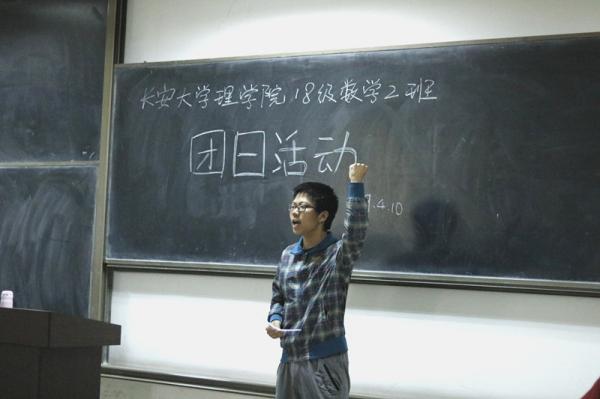 长安大学理学院18级数学2班
团日活动
9.4.10